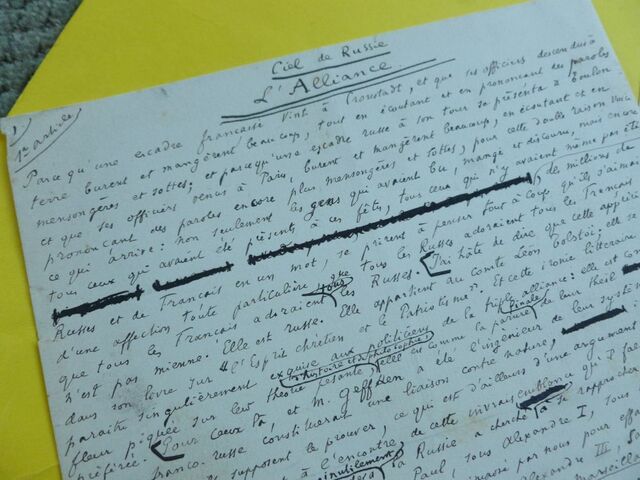 Ciel de Russie
L'Alliance
1er article
Parce qu'une escadre française vint à Cronstadt, et que ses officiers descendus à
terre burent et mangèrent beaucoup, tout en écoutant et en prononçant des paroles
mensongères et sottes; et parce qu'une escadre russe à son tour se présenta à Toulon
et que ses officiers venus à Paris, burent et mangèrent beaucoup, en écoutant et en
prononçant des paroles encore plus mensongères et sottes, pour cette double raison
ce qui arrive: non seulement les gens qui avaient bu, mangé et discouru, mais encore
tous ceux qui avaient été présents à ces fêtes, tous ceux qui n'y avaient même pas été
des millions de
Russes et de Français en un mot, se prirent à penser tout à coup qu'ils s'aimaient
d'une affection toute particulière, que tous les Russes adoraient tous les Français
que tous les Français adoraient tous les Russes. J'ai hâte de dire que cette
n'est pas mienne. Elle est russe. Elle appartient au comte Léon Tolstoï; elle
dans son livre sur "L'Esprit chrétien et le Patriotisme". Et cette ironie littéraire
paraîtra singulièrement exquise aux politiciens de la triple alliance: elle est
fleur piquée sur leur thèque pesante, historique et philosophique, elle est comme la parure finale de leur
préférée. Pour ceux-là, et M. Geffcken a été l'ingénieur de leur système
franco-russe constituerait une liaison contre nature,
supposent le prouver, ce qui est d'ailleurs d'une
à l'encontre de cette vraisemblance qu'il
inutilement la Russie a cherché à se rapprocher
Paul, sous Alexandre I, sous
imposé par nous pour
Alexandre III.
Marseillaise